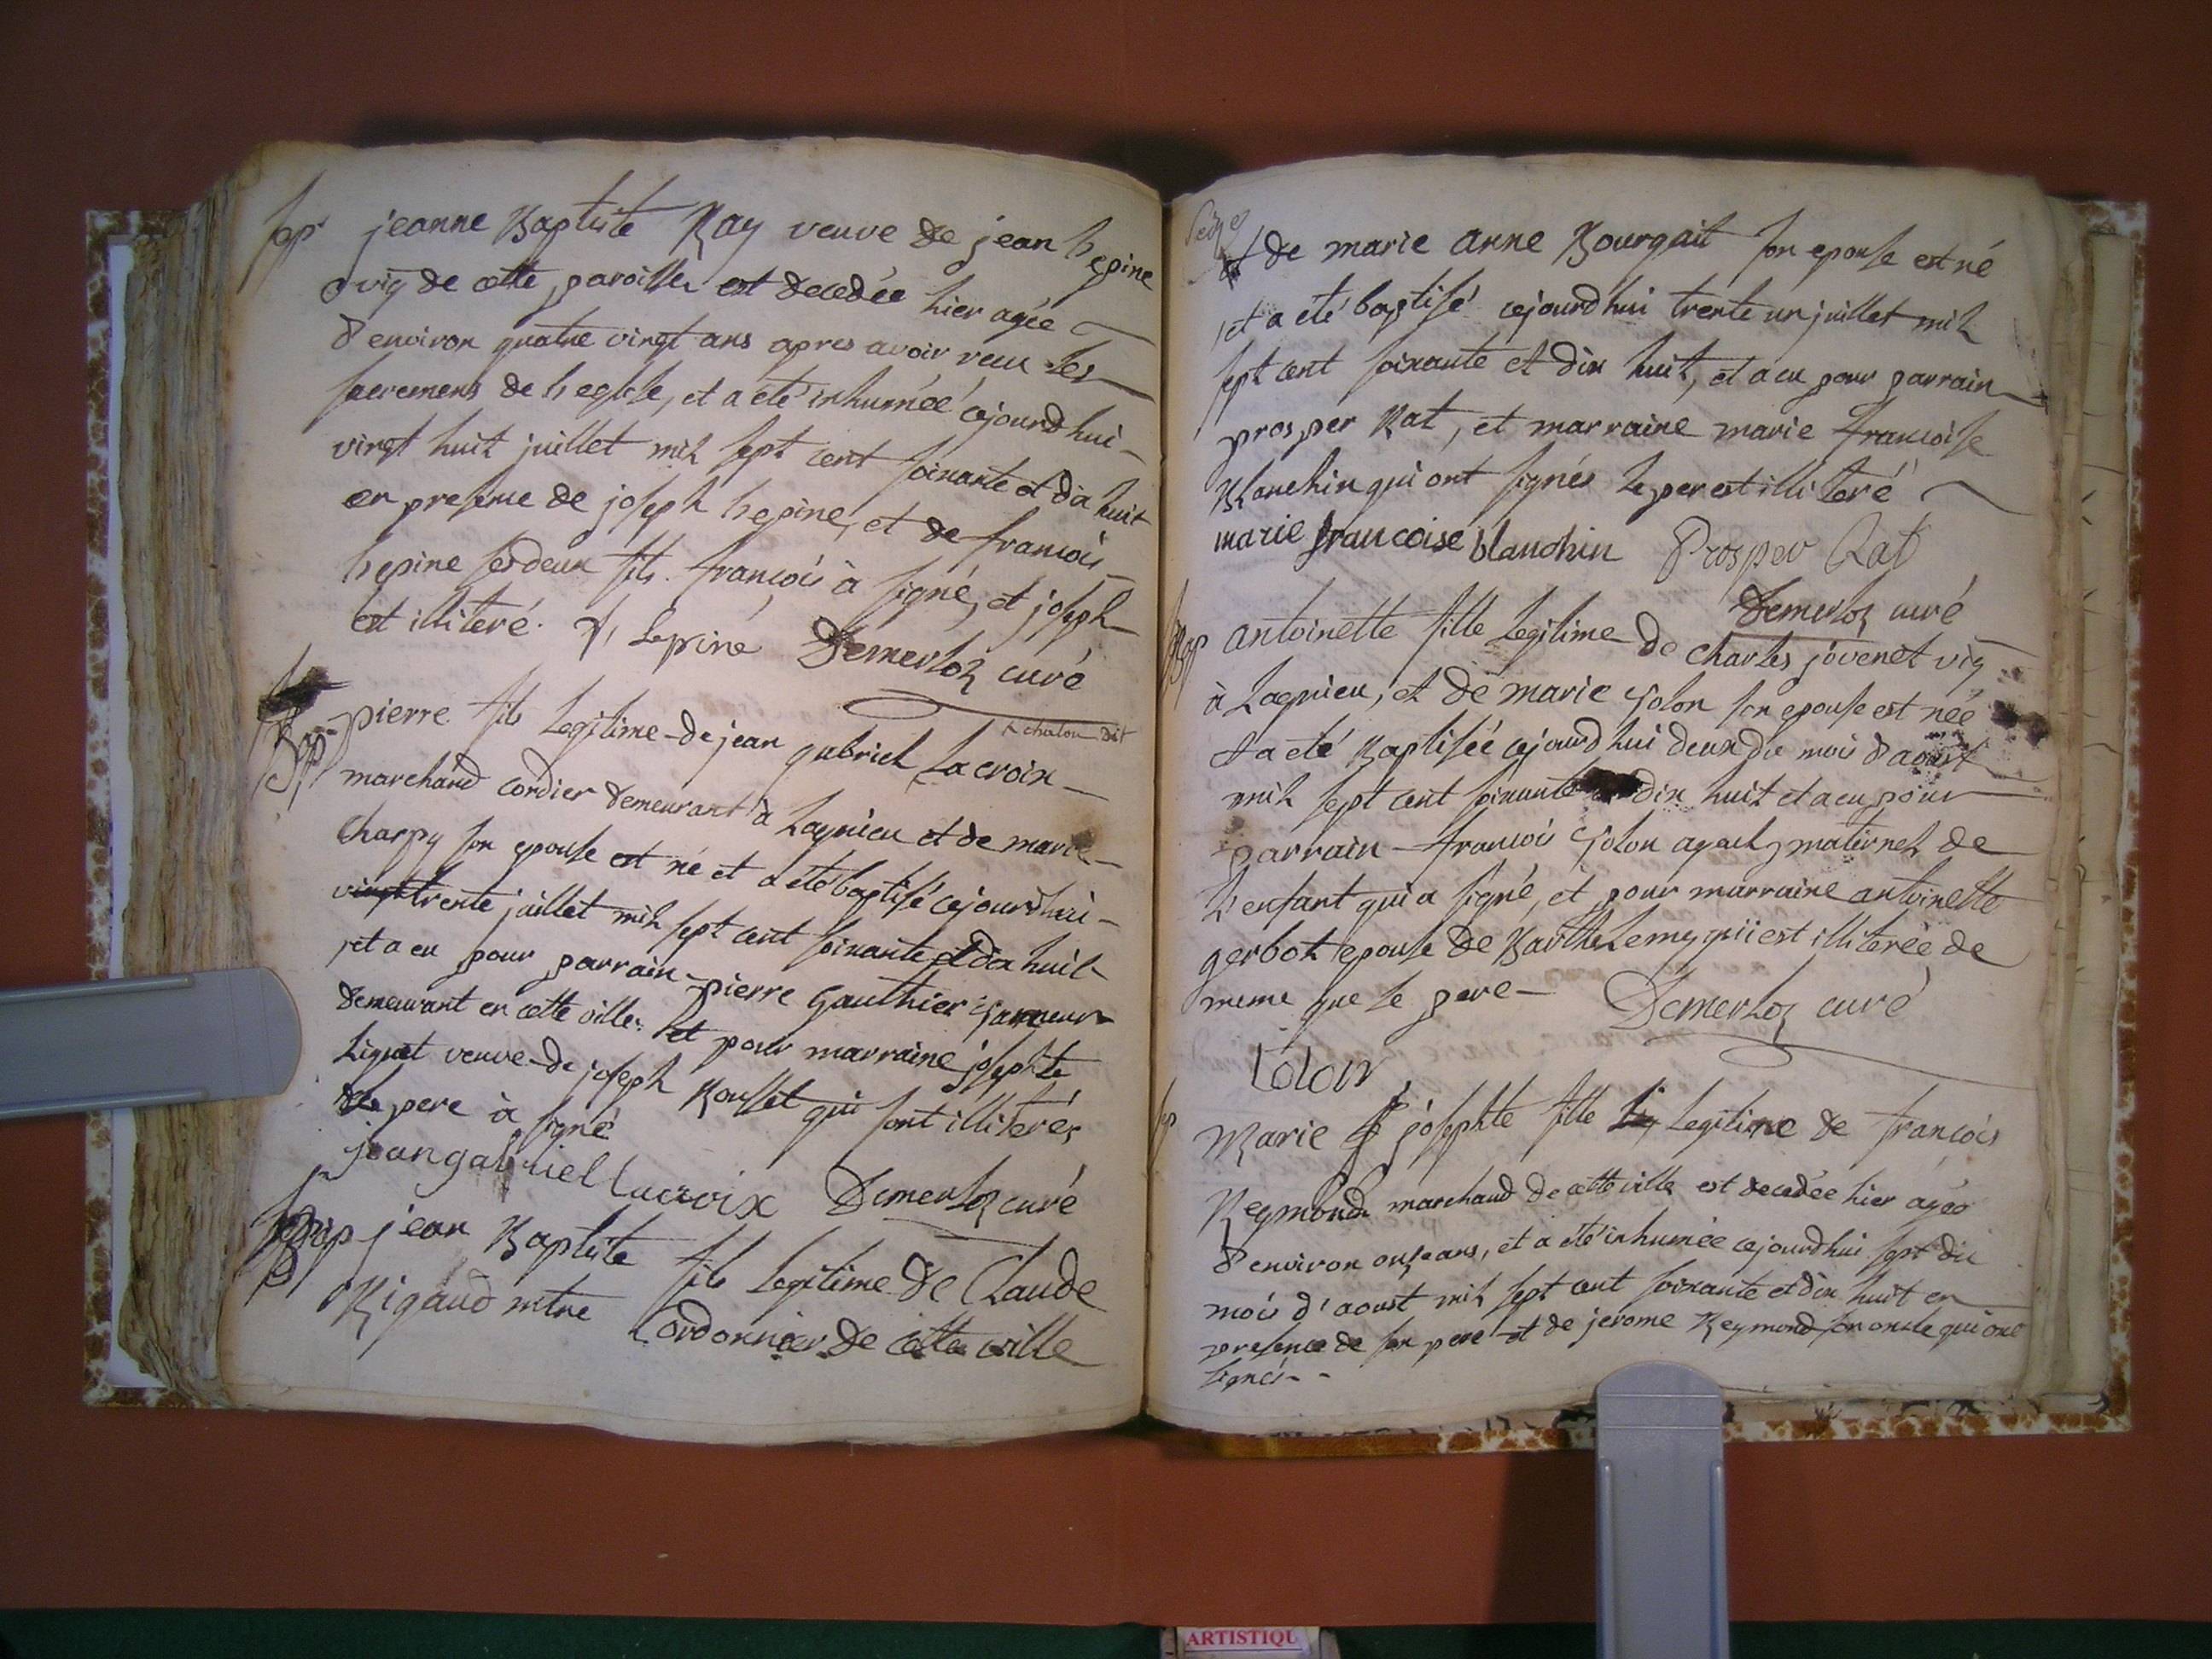 sep jeanne Baptiste Ray veuve de jean Lepine
vig de cette paroisse est decedée hier agée
d'environ quatre vingt ans apres avoir recu les
sacremens de L'eglise, et a eté inhumée cejourd'hui
vingt huit juillet mil sept cent soixante et dix huit
en presence de joseph Lepine, et de francois
Lepine ses deux fils. francois à signé, et joseph
est illiteré. f, Lepine Demerloz curé
Bap pierre fils Legitime de jean gabriel Lacroix
+ chalon dit
marchand cordier demeurant à Lagnieu et de marie
Charpy son epouse est né et a eté baptisé cejourd'hui
vingt trente juillet mil sept cent soixante et dix huit
et a eu pour parrain pierre Gauthier
demeurant en cette ville et pour marraine josephte
Liquet veuve de joseph Rousset qui sont illiterés
le pere à signé
jean gabriel Lacroix Demerloz curé
Bap jean Baptiste fils Legitime de Claude
Rigaud mtre Cordonnier de cette ville
et de marie anne Bourgait son epouse est né
et a eté baptisé cejourd'hui trente un juillet mil
sept cent soixante et dix huit, et a eu pour parrain
prosper Rat, et marraine marie francoise
Blanchin qui ont signés Le per est illiteré
marie francoise blanchin Prosper Rat
Demerloz curé
Bap antoinette fille Legitime de charles jovenet vig
à Lagnieu, et de marie Golon son epouse est née
et a eté Baptisée cejourd'hui deux du mois d'aoust
mil sept cent soixante dix huit et a eu pour
parrain francois Golon ayeul maternel de
L'enfant qui a signé, et pour marraine antoinette
gerbot epouse de Barthelemy qui est illiterée de
meme que le pere Demerloz curé
Colon
sep Marie josephte fille Legitime de francois
Reymond marchand de cette ville est decedée hier agée
d'environ onze ans, et a eté inhumée cejourd'hui sept du
mois d'aoust mil sept cent soixante et dix huit en
presence de son pere et de jerome Reymond son oncle qui ont
signés
ARTISTIQU